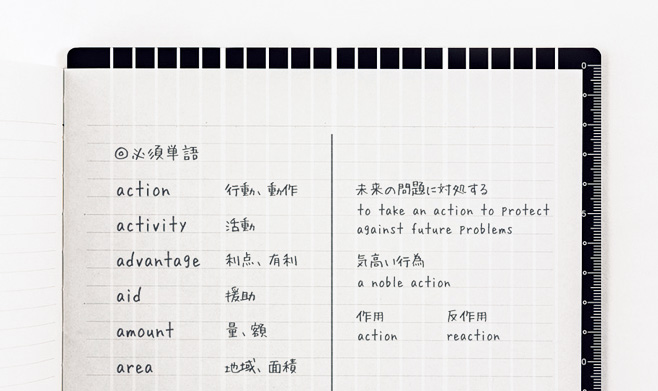 ◎必須単語
action 行動、動作
activity 活動
advantage 利点、有利
aid 援助
amount 量、額
area 地域、面積
未来の問題に対処する
to take an action to protect
against future problems
気高い行為
a noble action
作用 反作用
action reaction
0
5
0